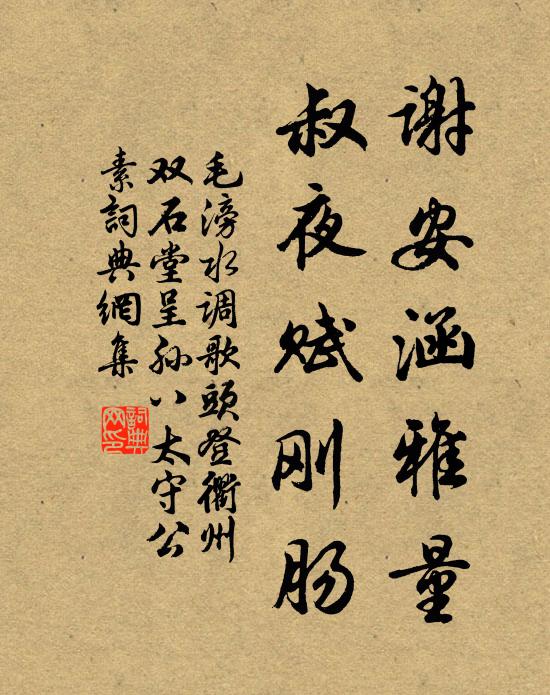 谢安涵雅量
叔夜赋刚肠
毛滂水调歌頭登衢州
双石堂呈孙八太守公
素詞典網集
詞典
网印